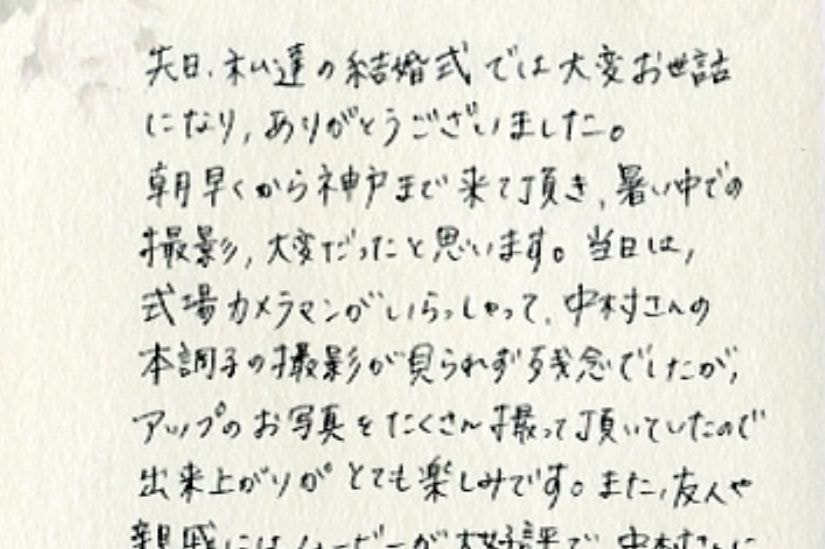 先日、私達の結婚式では大変お世話
になり、ありがとうございました。
朝早くから神戸まで来て頂き、暑い中での
撮影、大変だったと思います。当日は、
式場カメラマンがいらっしゃって、中村さんの
本調子の撮影が見られず残念でしたが、
アップのお写真をたくさん撮って頂いていたので
出来上がりがとても楽しみです。また、友人や
親戚にはムービーが大好評で、中村さんに